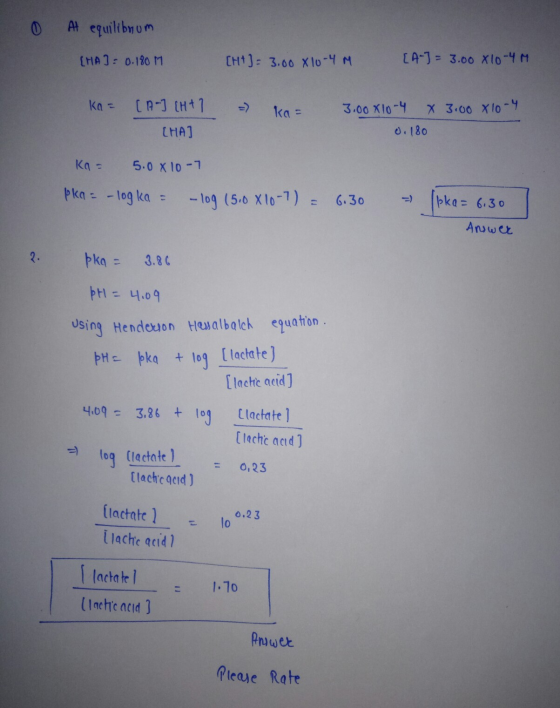 ① At equilibrium
[HA] = 0.180 M [H+] = 3.00 X10-4 M [A-] = 3.00 X10-4 M
Ka = [A-] [H+] / [HA] => ka = 3.00 X10-4 X 3.00 X10-4 / 0.180
Ka = 5.0 X 10-7
pka = -log ka = -log (5.0 X10-7) = 6.30 => pka = 6.30
Answer
2. pka = 3.86
pH = 4.09
Using Henderson Hassalbalch equation.
pH = pka + log [lactate] / [lactic acid]
4.09 = 3.86 + log [lactate] / [lactic acid]
=> log [lactate] / [lactic acid] = 0.23
[lactate] / [lactic acid] = 10 0.23
[lactate] / [lactic acid] = 1.70
Answer
Please Rate